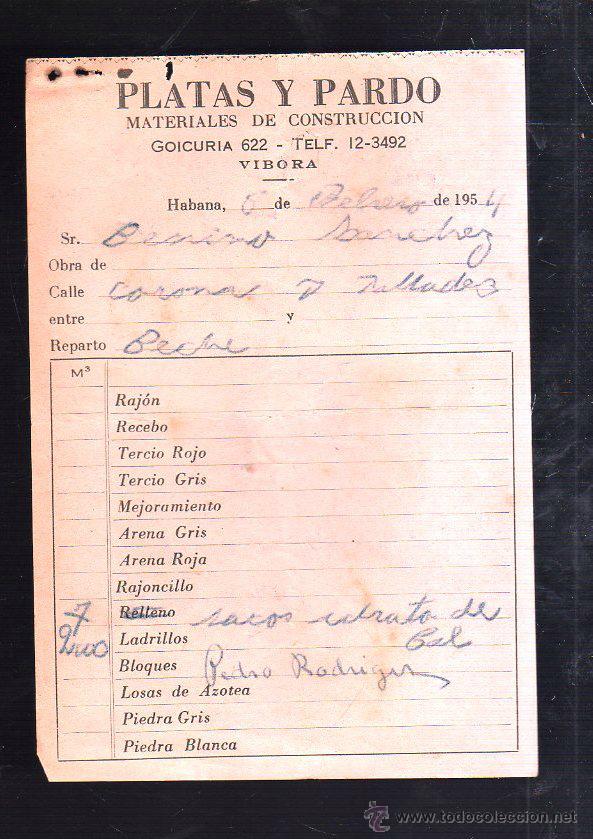 PLATAS Y PARDO
MATERIALES DE CONSTRUCCION
GOICURIA 622 - TELF. 12-3492
VIBORA
Habana, 6 de Febrero de 1954
Sr. Benino Sanchez
Obra de
Calle Corona
entre y
Reparto
M³
Rajón
Recebo
Tercio Rojo
Tercio Gris
Mejoramiento
Arena Gris
Arena Roja
Rajoncillo
7 Relleno sacos idrato de
2000 Ladrillos Cal
Bloques Pedro Rodriguez
Losas de Azotea
Piedra Gris
Piedra Blanca
© todocoleccion
www.todocoleccion.net